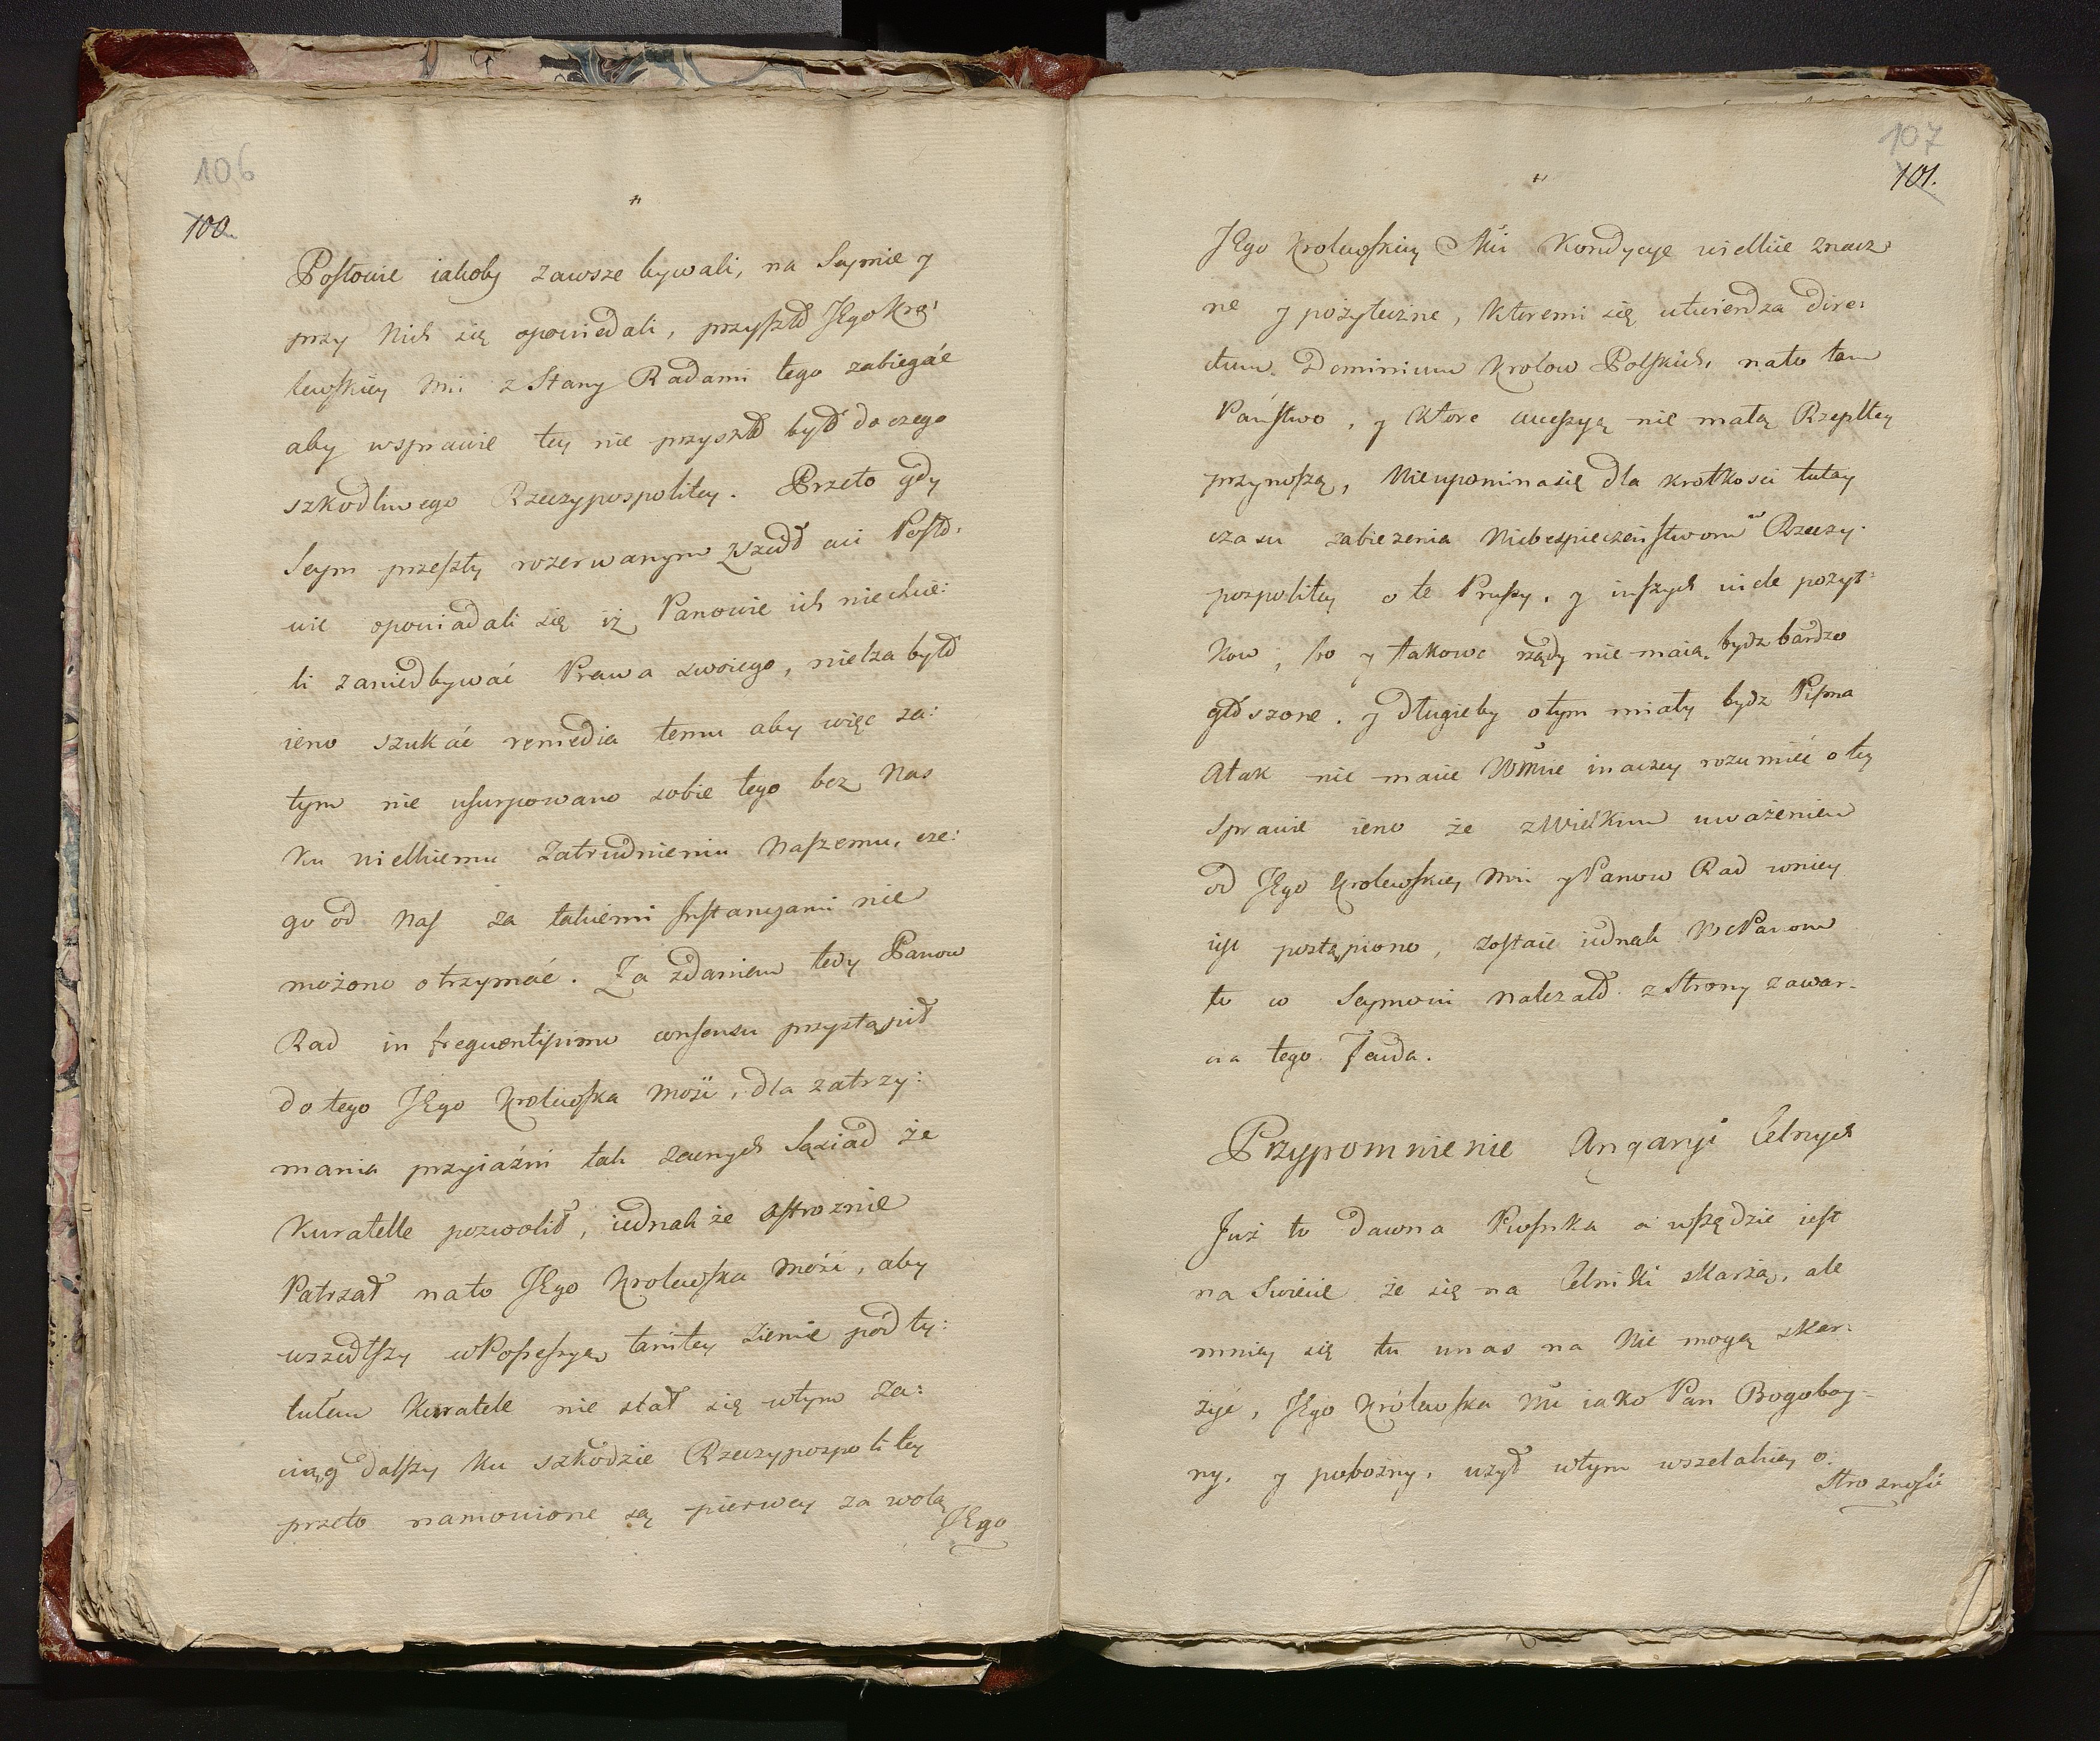 106
100.
"
Posłowie iakoby zawsze bywali, na Seymie y
przy Nich się opowiedali, przyszło JEgo Kro:
lewskiey Mci z Stany Radami tego zabiegáć
aby wsprawie tey nie przyszło było do czego
szkodliwego Rzeczypospolitey. Przeto gdy
Seym przeszły rozerwanym wszedł aci Posło.
wie opowiadali się iż Panowie ich niechcie:
li zaniedbywać Prawa swoiego, nielza było
ieno szukáć remedia temu aby więc za:
tym nie usurpowano sobie tego bez Nas
Ku wielkiemu Zatrudnieniu Naszemu, cze:
go od Nas za takiemi Instancyami nie
możono otrzymáć. Za zdaniem tedy Panow
Rad in frequentissimo consensu przystąpił
do tego JEgo Krolewska Mość, dla zatrzy:
mania przyiaźni tak zacnych Sąsiad że
Kuratelle pozwolił, iednak że ostroznie
Patrzał nato JEgo Krolewska Mość, aby
wszedłszy wPossessyą tamtey Ziemie pod ty:
tułem Kuratele nie stał się wtym Za:
ciąg dalszy Ku szkodzie Rzeczypospolitey
przeto namowione są pierwey za wolą
JEgo
107
101.
"
JEgo Krolewskiey Mci Kondycye wielkie znacz
ne y pożyteczne, Ktoremi się utwierdza dire:
ctum Dominium Krolow Polskich, nato tam
Państwo, y Ktore accessyą nie małą Rzeplltey
przynoszą, Nieupomina się dla krotkosci tutay
czasu zabiezenia Niebespieczeństwom Rzeczy.
pospolitey o te Prusy. y inszych wiele pozyt:
Kow, bo y takowe rządy nie maią bydz bardzo
głoszone. y długieby otym miały bydz Pisma
Atak nie macie Wmcie inaczey rozumieć o tey
Sprawie ieno że z Wielkim uważeniem
od JEgo Krolewskiey Mci y Panow Rad wniey
iest postąpiono, zostaie iednak WcPanom
to co Seymowi należało z Strony zawar.
cia tego Feuda.
Przypomnienie Angaryi Celnych
Juz to dawna Piosnka a wszędzie iest
na Swiecie że się na Celniki skarżą, ale
mniey się tu unas na Nie mogą skar:
żyć, JEgo Królewska Mć iako Pan Bogoboy=
ny, y pobożny, użył wtym wszelakiey o:
strożność